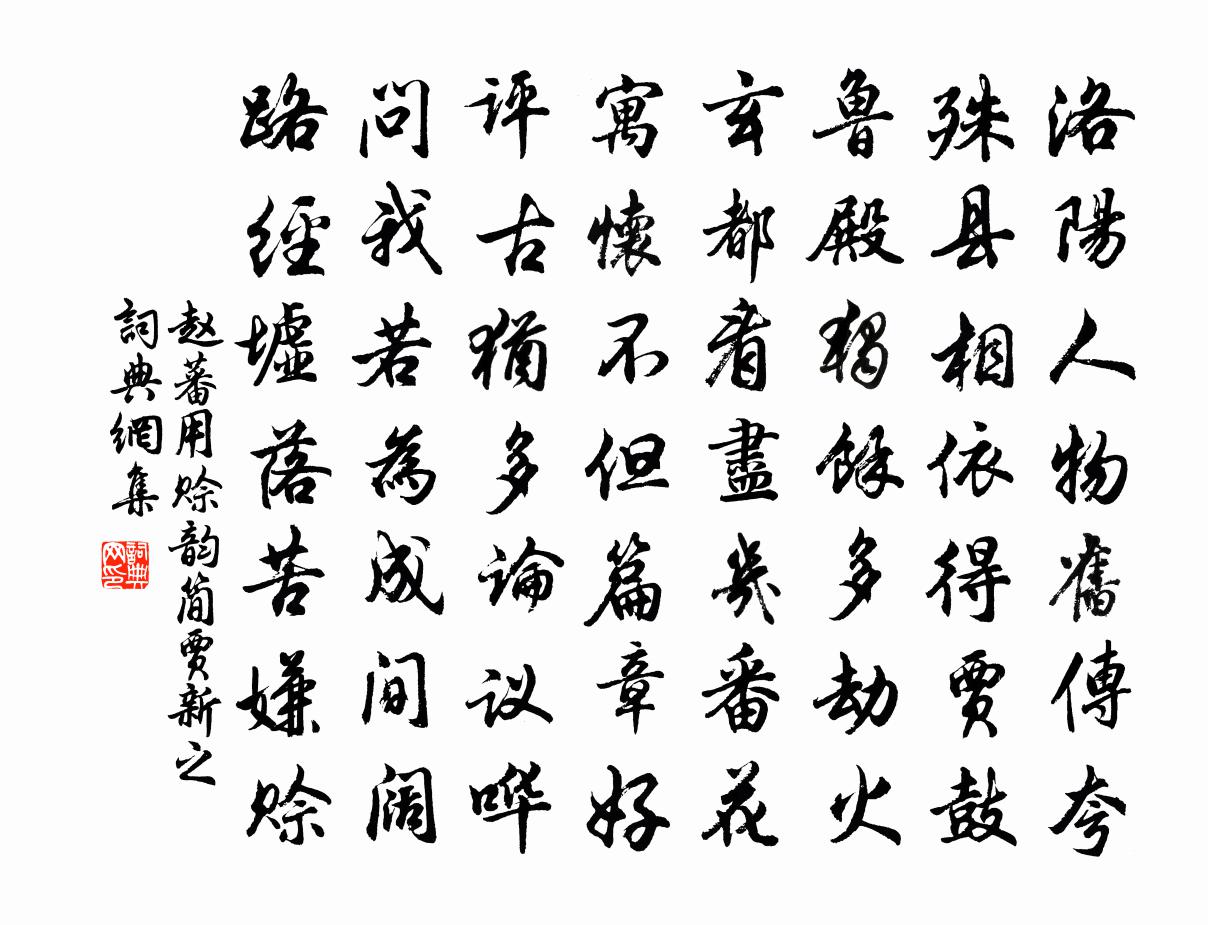 洛陽人物舊傳夸
殊县相依得贾鼓
鲁殿獨餘多劫火
玄都看盡幾番花
寓懷不但篇章好
评古猶多論议哗
问我若為成间阔
路經墟落苦嫌赊
赵蕃用赊韵简贾新之
詞典網集
詞典网印